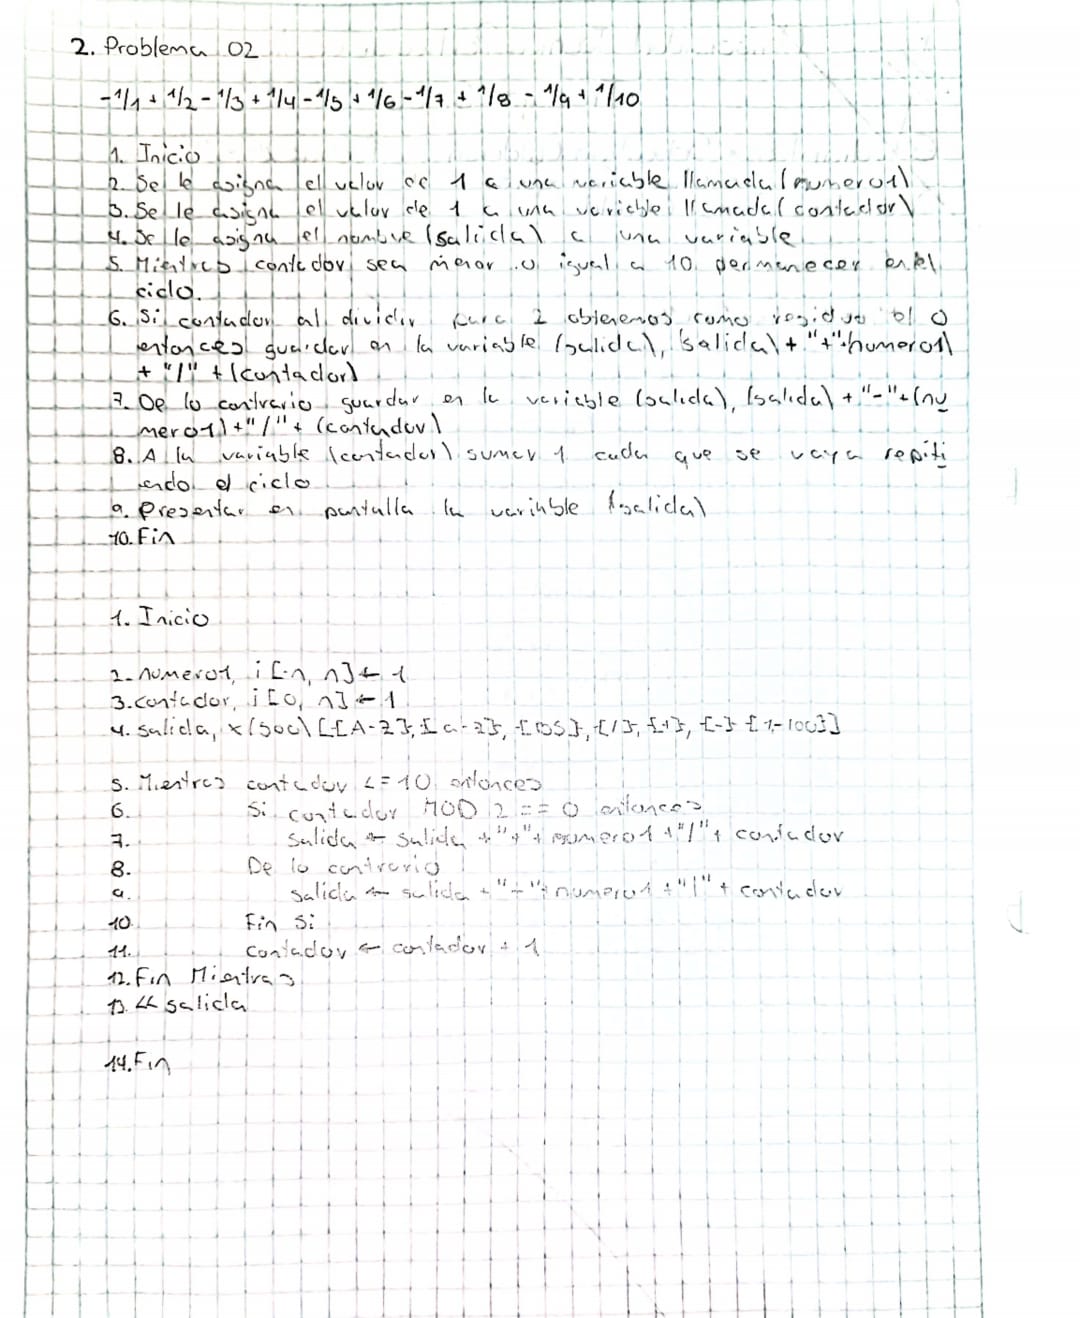 2. Problema 02
-1/1 + 1/2 - 1/3 + 1/4 - 1/5 + 1/6 - 1/7 + 1/8 - 1/9 + 1/10
1. Inicio
2. Se le asigna el valor de 1 a una variable llamada (numero1)
3. Se le asigna el valor de 1 a una variable llamada (contador)
4. Se le asigna el nombre (salida) a una variable
5. Mientras contador sea menor o igual a 10 permanecer en el
ciclo.
6. Si contador al dividir para 2 obtenemos como residuo el 0
entonces guardar en la variable (salida), salida) + "+" + numero1)
+ "/" + (contador)
7. De lo contrario guardar en la variable (salida), (salida) + "-" + (nu
mero1) + "/" + (contador)
8. A la variable (contador) sumar 1 cada que se vaya repiti
endo el ciclo
9. Presentar en pantalla la variable (salida)
10. Fin
1. Inicio
2. numero1, i [-n, n] ← 1
3. contador, i [0, n] ← 1
4. salida, x(500) [{A-Z}, {a-z}, {/}, {+}, {-} {1-100}]
5. Mientras contador <= 10 entonces
6. Si contador MOD 2 == 0 entonces
7. salida ← salida + "+" + numero1 + "/" + contador
8. De lo contrario
9. salida ← salida + "-" + numero1 + "/" + contador
10. Fin Si
11. contador ← contador + 1
12. Fin Mientras
13. << salida
14. Fin